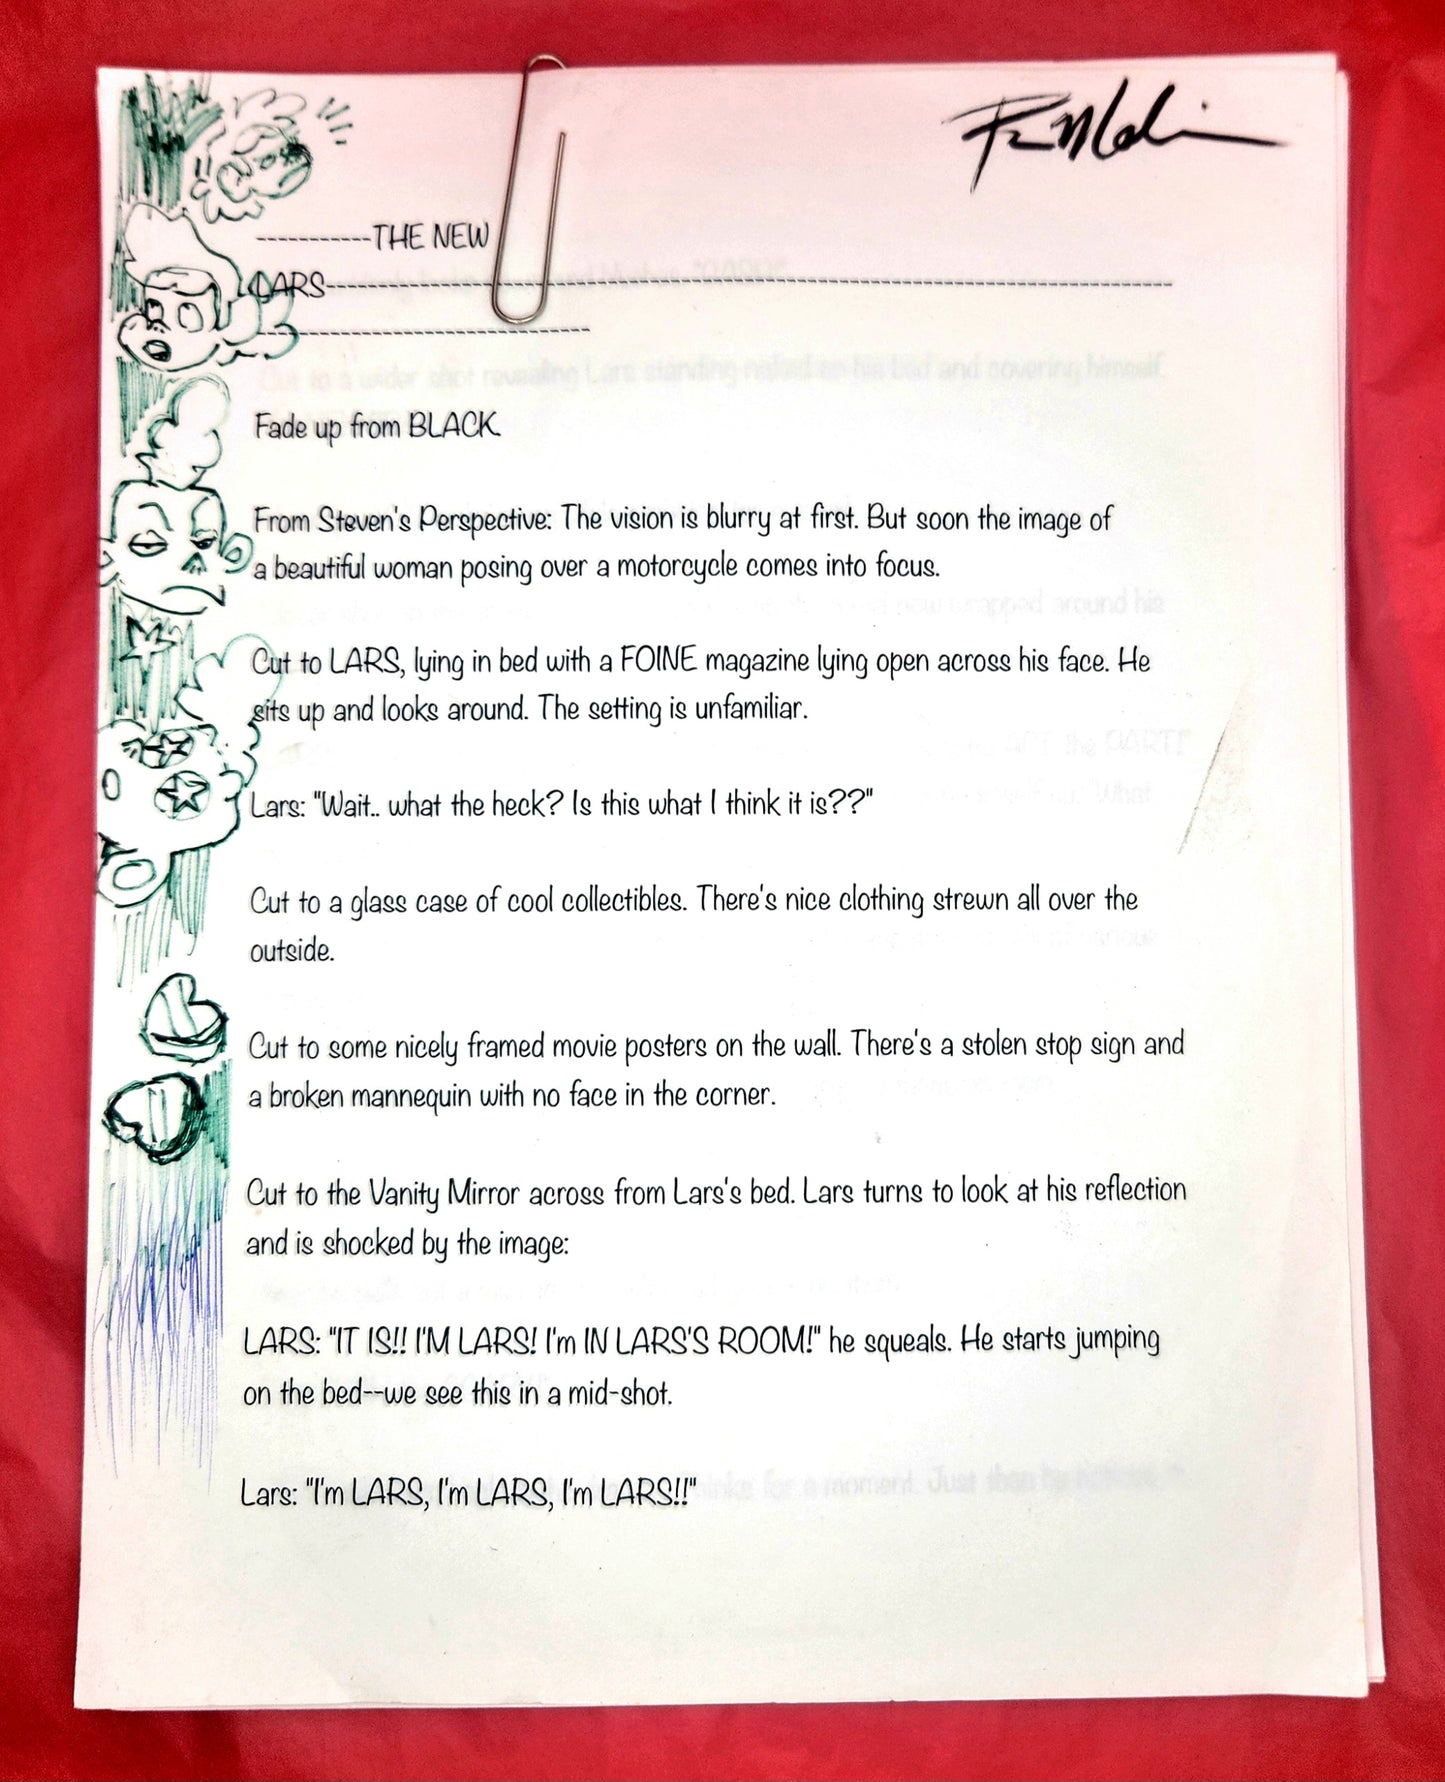 -----------THE NEW
LARS---------------------------------------------------------------------------------
----------------------------------
Fade up from BLACK.
From Steven's Perspective: The vision is blurry at first. But soon the image of
a beautiful woman posing over a motorcycle comes into focus.
Cut to LARS, lying in bed with a FOINE magazine lying open across his face. He
sits up and looks around. The setting is unfamiliar.
Lars: "Wait.. what the heck? Is this what I think it is??"
Cut to a glass case of cool collectibles. There's nice clothing strewn all over the
outside.
Cut to some nicely framed movie posters on the wall. There's a stolen stop sign and
a broken mannequin with no face in the corner.
Cut to the Vanity Mirror across from Lars's bed. Lars turns to look at his reflection
and is shocked by the image:
LARS: "IT IS!! I'M LARS! I'm IN LARS'S ROOM!" he squeals. He starts jumping
on the bed--we see this in a mid-shot.
Lars: "I'm LARS, I'm LARS, I'm LARS!!"